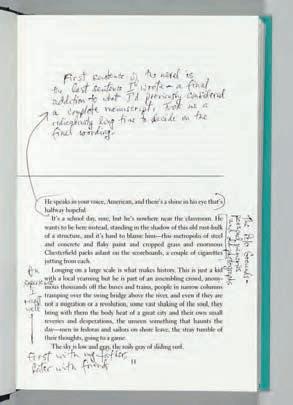 First sentence of the novel is
the last sentence I wrote – a final
addition to what I'd previously considered
a complete manuscript. Took me a
ridiculously long time to decide on the
final wording.
He speaks in your voice, American, and there's a shine in his eye that's
halfway hopeful.
It's a school day, sure, but he's nowhere near the classroom. He
wants to be here instead, standing in the shadow of this old rust-hulk
of a structure, and it's hard to blame him—this metropolis of steel
and concrete and flaky paint and cropped grass and enormous
Chesterfield packs aslant on the scoreboards, a couple of cigarettes
jutting from each.
Longing on a large scale is what makes history. This is just a kid
with a local yearning but he is part of an assembling crowd, anony-
mous thousands off the buses and trains, people in narrow columns
tramping over the swing bridge above the river, and even if they are
not a migration or a revolution, some vast shaking of the soul, they
bring with them the body heat of a great city and their own small
reveries and desperations, the unseen something that haunts the
day—men in fedoras and sailors on shore leave, the stray tumble of
their thoughts, going to a game.
The sky is low and gray, the roily gray of sliding surf.
The Polo Grounds –
experience I
first with my father
later with friends
11